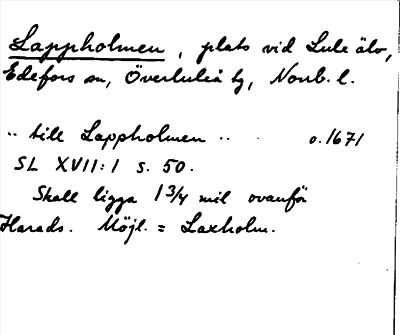 Lappholmen, plats vid Lule älv,
Edefors sn, Överluleå tg, Norrb. l.
.. till Lappholmen .. o. 1671
SL XVII:1 s. 50.
Skall ligga 1 3/4 mil ovanför
Harads. Möjl. = Laxholm.